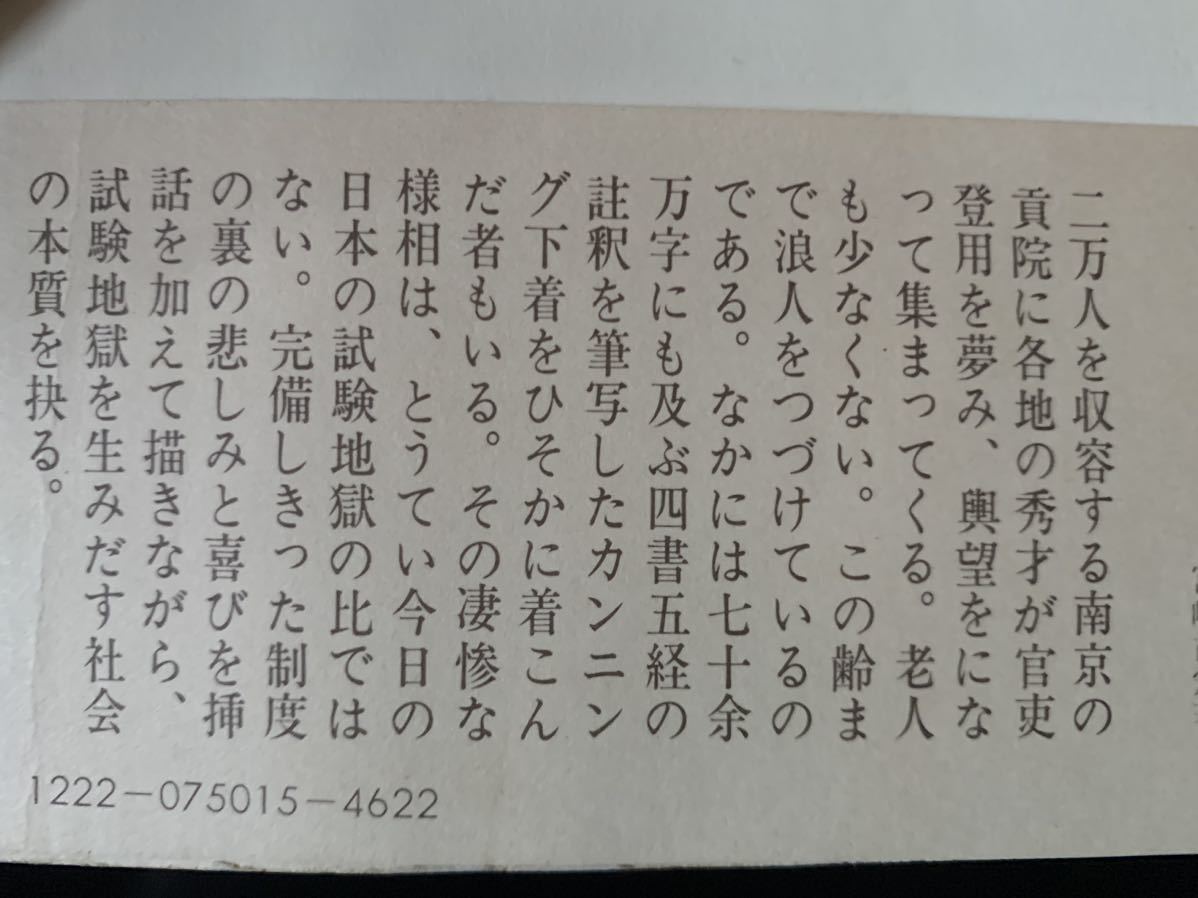 二万人を収容する南京の
貢院に各地の秀才が官吏
登用を夢み、輿望をにな
って集まってくる。老人
も少なくない。この齢ま
で浪人をつづけているの
である。なかには七十余
万字にも及ぶ四書五経の
註釈を筆写したカンニン
グ下着をひそかに着こん
だ者もいる。その凄惨な
様相は、とうてい今日の
日本の試験地獄の比では
ない。完備しきった制度
の裏の悲しみと喜びを挿
話を加えて描きながら、
試験地獄を生みだす社会
の本質を抉る。
1222-075015-4622